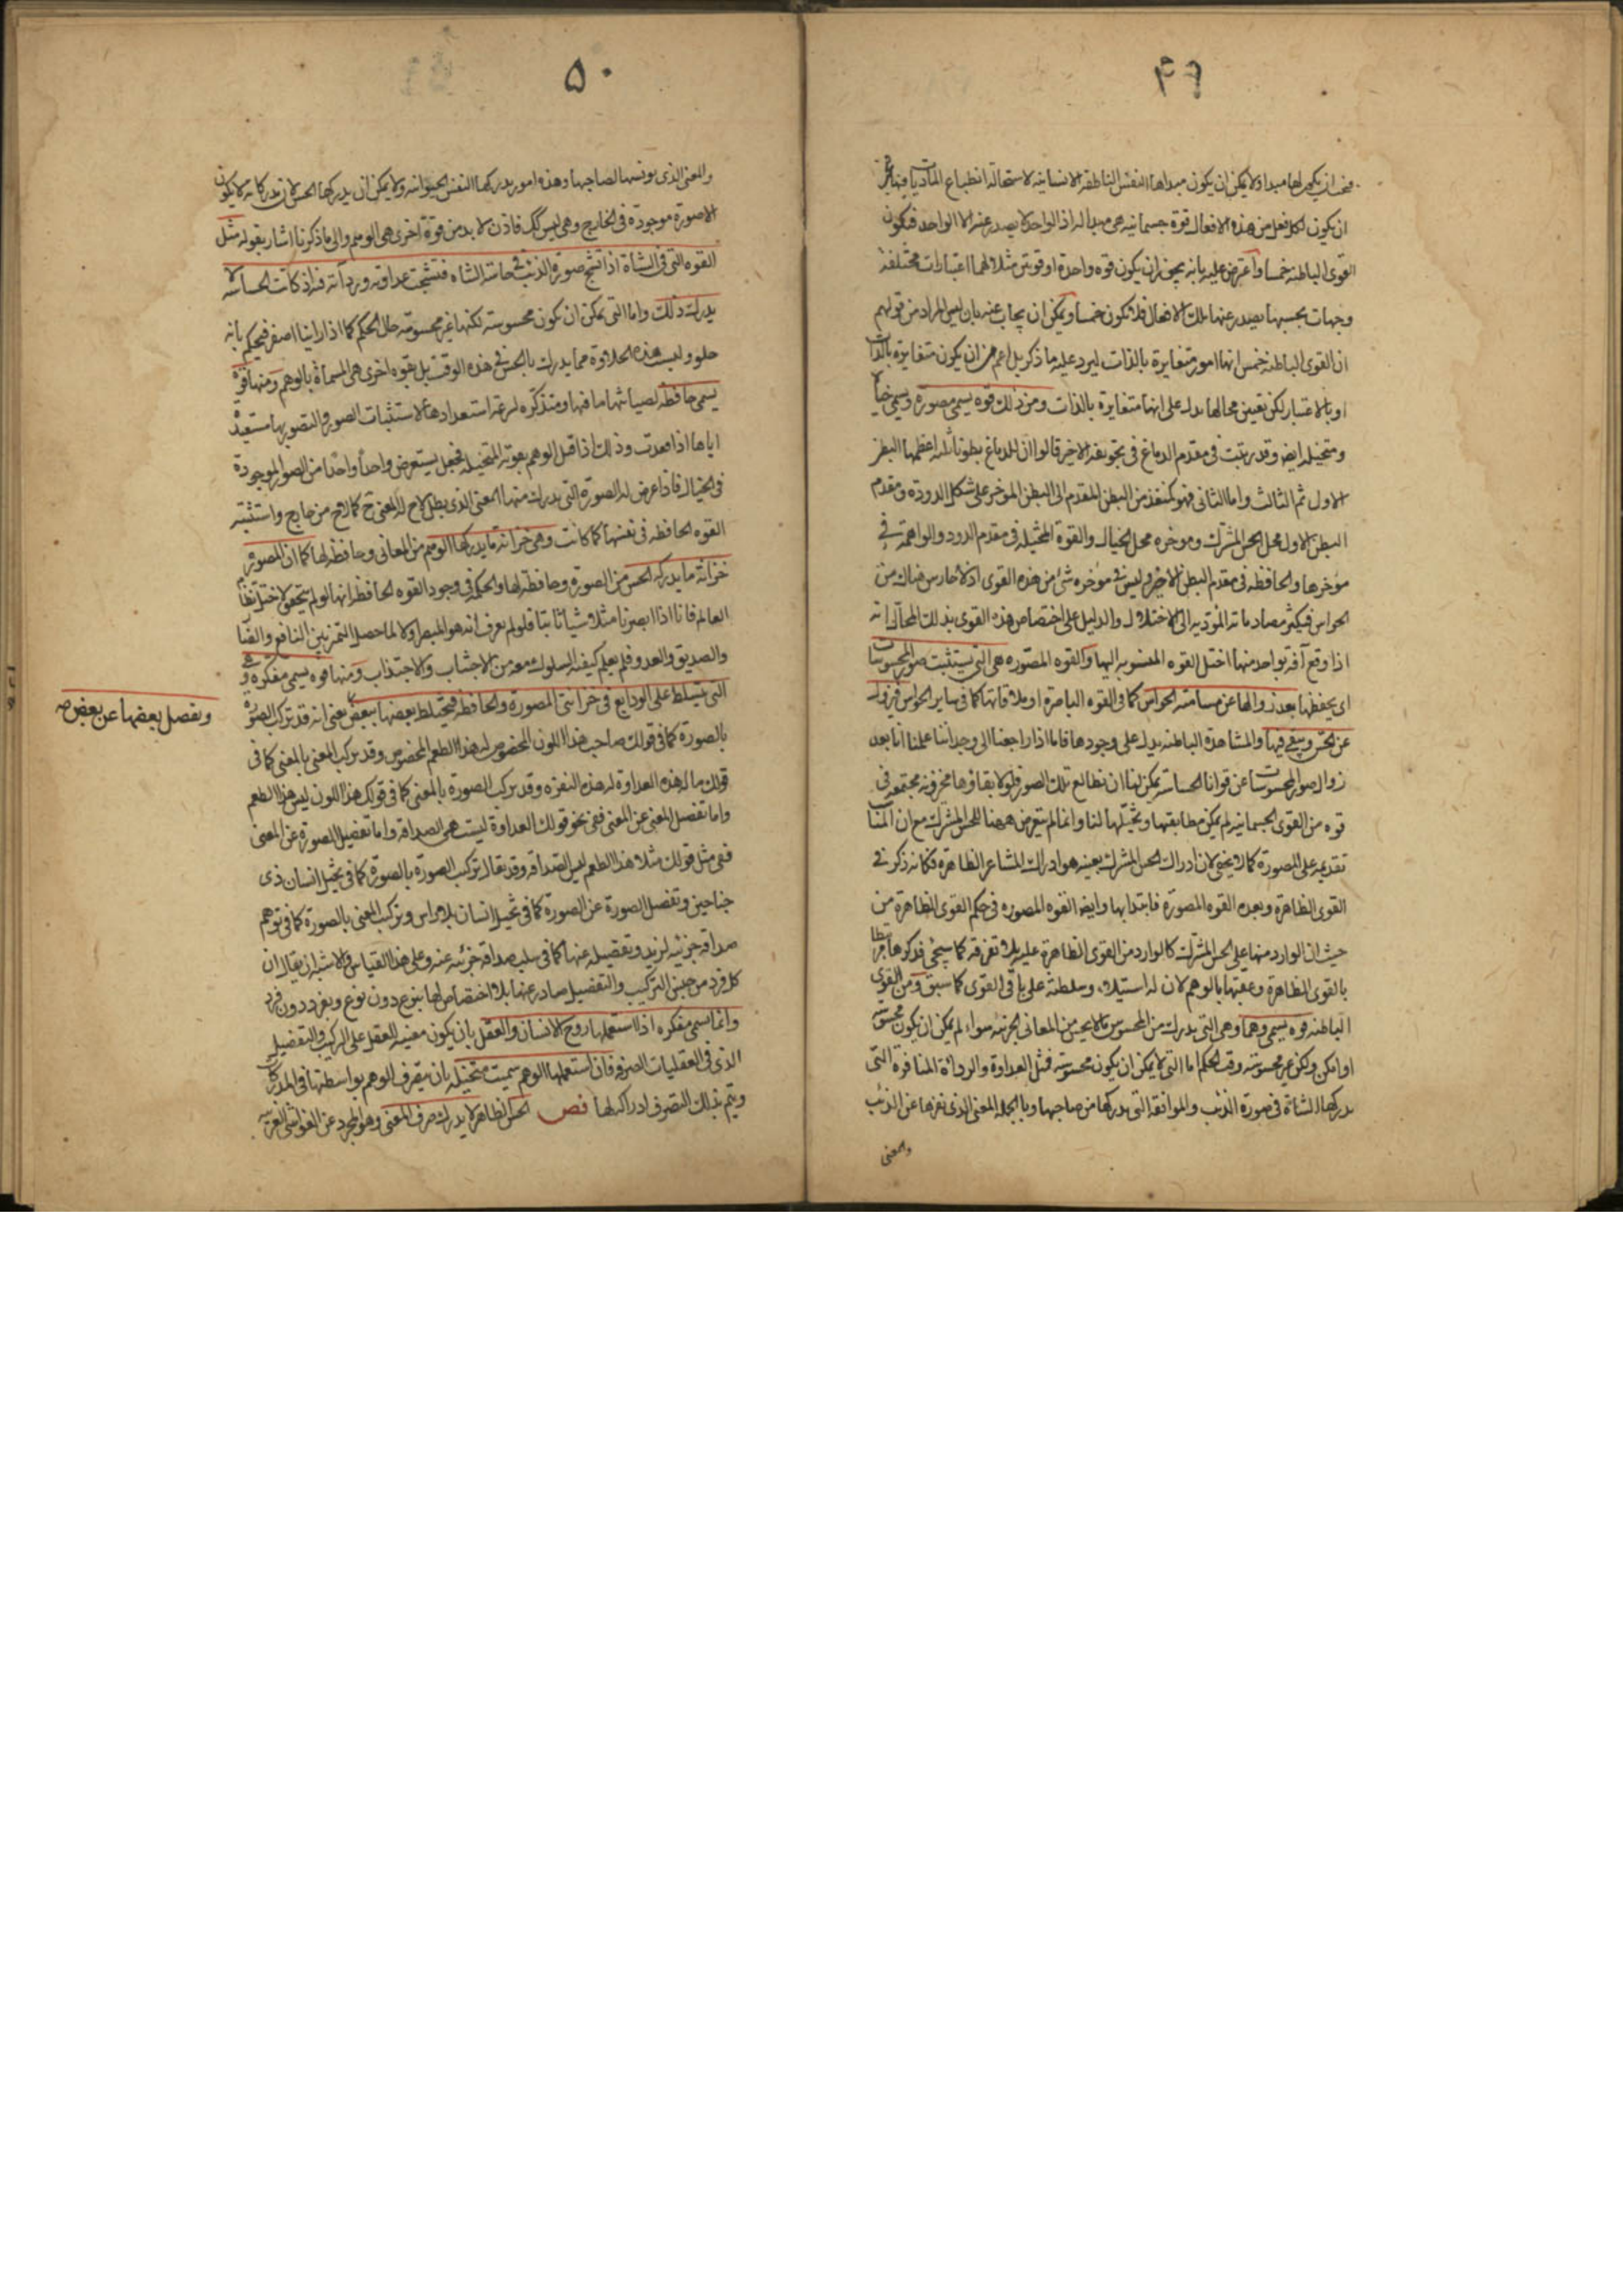 ٤٩
فيجب ان يكون لها مبدا ولا يمكن ان يكون مبداها النفس الناطقة الانسانية لاستحالة انطباع الماديات فيها
ان يكون لكل فعل من هذه الافعال قوة جسمانية هي مبدأ له اذ الواحد لا يصدر عنه الا الواحد فيكون
القوى الباطنة خمسا واعترض عليه بانه يجوز ان يكون قوه واحدة او قوتين مثلا لها اعتبارات مختلفة
وجهات بحسبها يصدر عنها تلك الافعال فلا يكون خمسا ويمكن ان يجاب عنه بان ليس المراد من قولهم
ان القوى الباطنة خمس انها امور متغايرة بالذات ليرد عليه ما ذكر بل اعم من ان يكون متغايرة بالذات
او بالاعتبار لكن تعيين محالها يدل على انها متغايرة بالذات ومن ذلك قوه يسمى مصورة ويسمى خيالا
ومتخيلة ايض وقد رتبت في مقدم الدماغ في تجويفه الاخير قالوا ان للدماغ بطونا ثلثة اعظمها البطن
الاول ثم الثالث واما الثانى فهو كمنفذ من البطن المقدم الى البطن الموخر على شكل الدودة ومقدم
البطن الاول محل الحس المشترك وموخره محل الخيال والقوة المتخيلة في مقدم الدود والواهمة في
موخرها والحافظة فى مقدم البطن الاخير وليس في موخره شئ من هذه القوى اذ لا حارس هناك من
الحواس فيكثر مصادماته المؤدية الى الاختلال والدليل على اختصاص هذه القوى بذلك المحال انه
اذا وقع آفة بواحد منها اختل القوه المنسوبة اليها والقوه المصورة هى التى يستثبت صور المحسوسات
اى يحفظها بعد زوالها عن مسامتة الحواس كما فى القوه الباصرة او ملاقاتها كما فى ساير الحواس فيزول
عن الحس ويبقى فيها والمشاهدة الباطنة يدل على وجودها فاما اذا راجعنا الى وجداننا علمنا انا بعد
زوال صور المحسوسات عن قوانا الحساسة يمكن لنا ان نطالع تلك الصور فلولا بقاؤها مخزونة مجتمعة فى
قوه من القوى الجسمانية لم يمكن مطابقتها وتخيلها لنا وانما لم يتعرض ههنا للحس المشترك مع ان المناسب
تقديمه على المصورة كما لا يخفى لان ادراك الحس المشترك بعينه هو ادراك المشاعر الظاهرة فكانه ذكر فى
القوى الظاهرة وبعده القوه المصورة فابتدا بها وايض القوه المصورة فى حكم القوى الظاهرة من
حيث ان الوارد منها على الحس المشترك كالوارد من القوى الظاهرة عليه بلا تفرقة كما سيجئ فذكرها
بالقوى الظاهرة وعقبها بالوهم لان له استيلاء وسلطنة على باقى القوى كما سبق ومن القوى
الباطنة قوه يسمى وهما وهى التى يدرك من المحسوس ما لا يحس من المعانى الجزئية سواء لم يمكن ان يكون محسوسة
او امكن ولكن غير محسوسة وقت الحكم اما التى لا يمكن ان يكون محسوسة فمثل العداوة والرداءة المنافرة التى
يدركها الشاة فى صورة الذئب والموافقة التى يدركها من صاحبها وبالجملة المعنى الذى نفرها عن الذئب
والمعنى
٥٠
والمعنى الذى يونسها لصاحبها وهذه امور يدركها النفس الحيوانية ولا يمكن ان يدركها الحس لان مدركاته لا يكون
الا صورة موجودة فى الخارج وهى ليس كك فاذن لا بد من قوة اخرى هى الوهم والى ما ذكرنا اشار بقوله مثل
القوه التى فى الشاة اذا تشبح صورة الذئب فى حاسة الشاه فتشبحت عداوته وردائته فيه اذ كانت الحاسة لا
يدرك ذلك واما التى يمكن ان يكون محسوسة لكنها غير محسوسة حال الحكم كما اذا راينا اصفر فيحكم بانه
حلو وليست هذه الحلاوة مما يدرك بالحس فى هذه الوقت بل بقوه اخرى هى المسماة بالوهم ومنها قوة
يسمى حافظة لصيانتها ما فيها ومتذكره لسرعة استعدادها لاستثبات الصور والتصور بها مستعيدة
اياها اذا فقدت وذلك اذا اقبل الوهم بقوته المتخيلة فجعل يستعرض واحدا واحدا من الصور الموجودة
فى الخيال فاذا عرض له الصورة التى يدرك منها المعنى الذى بطل لاح له المعنى ح كما لاح من خارج واستثبته
القوه الحافظه فى نفسها كما كانت وهى خزانة ما يدركها الوهم من المعانى وحافظه لها كما ان المصورة
خزانة ما يدركه الحس من الصورة وحافظة لها والحكمة فى وجود القوه الحافظة انها لو لم يتحقق لاختل نظام
العالم فانا اذا ابصرنا مثلا شيئا ثانيا فلو لم يعرف انه هو المبصر اولا لما حصل التميز بين النافع والضار
والصديق والعدو فلم يعلم كيفية السلوك معه من الاجتناب والاجتذاب ومنها قوه يسمى مفكره وهى
التى يتسلط على الودايع فى خزانتى المصورة والحافظه فيختلط بعضها ببعض يعنى انه قد تركب الصورة
ويفصل بعضها عن بعض صح
بالصورة كما فى قولك صاحب هذا اللون المخصوص له هذا الطعم المخصوص وقد يركب المعنى بالمعنى كما فى
قولك ما له هذه العداوة له هذه النفرة وقد يركب الصورة بالمعنى كما فى قولك هذا اللون ليس هذا الطعم
واما تفصل المعنى عن المعنى ففى نحو قولك العداوة ليست هى الصداقة واما تفصيل الصورة عن المعنى
ففى مثل قولك مثلا هذا الطعم ليس الصداقة وقد يقال تركيب الصورة بالصورة كما فى تخيل انسان ذى
جناحين وتفصل الصورة عن الصورة كما فى تخيل انسان بلا راس وتركيب المعنى بالصورة كما فى توهم
صداقة جزئية لزيد وتفصيله عنها كما فى سلب صداقة جزئية عنه وعلى هذا القياس والاشبه ان يقال ان
كل فرد من جنس التركيب والتفصيل صادر عنها بلا اختصاص لها بنوع دون نوع وبفرد دون فرد
وانما سمى مفكره اذا استعملها روح الانسان والعقل بان يكون معينة للعقل على التركيب والتفصيل
الذى فى العقليات الصرفة فان استعملها الوهم سميت متخيلة بان يتصرف الوهم بواسطتها فى المدركات
ويتم بذلك التصرف ادراكه لها فص الحس الظاهر لا يدرك صرف المعنى وهو المجرد عن الغواشى الغريبة